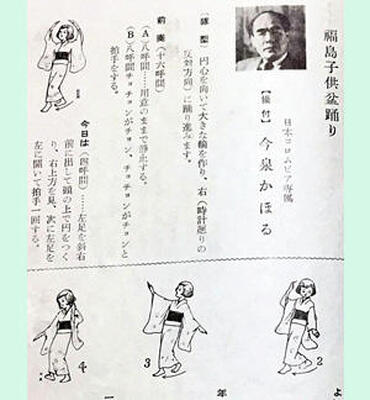 福島子供盆踊り
日本コロムビア専属
【振付】 今泉かほる
【隊型】 円心を向いて大きな輪を作り、右(時計廻りの
反対方向)に踊り進みます。
前奏(十六呼間)
(A) 八呼間……用意のままで静止する。
(B) 八呼間チョチョンがチョン、チョチョンがチョンと
拍手をする。
今日は(四呼間)……左足を斜右
前に出して頭の上で円をつく
り、右上方を見、次に左足を
左に開いて拍手一回する。
2
3
4
よ
年
一